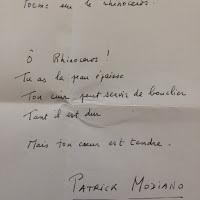 Poème sur le rhinocéros.
Ô Rhinocéros !
Tu as la peau épaisse
Ton cuir peut servir de bouclier
Tant il est dur
Mais ton cœur est tendre.
PATRICK MODIANO